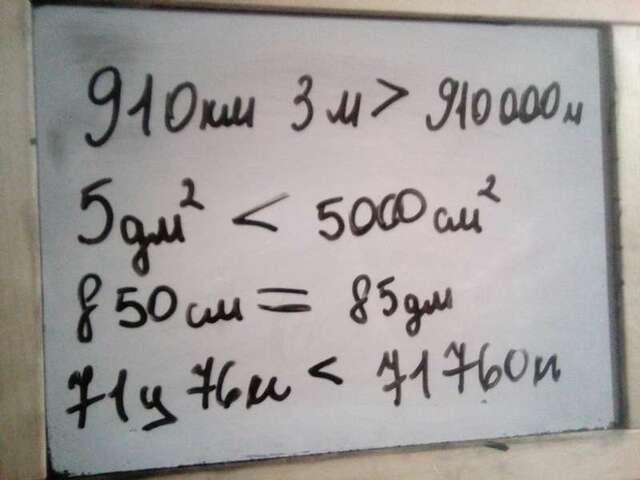 910км 3м > 910000м
5дм² < 5000см²
850см = 85дм
71ц 76к < 71760к